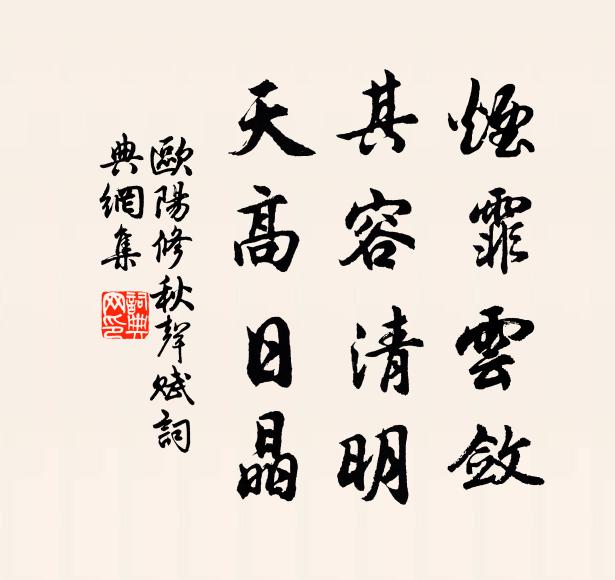 煙霏雲斂
其容清明
天高日晶
歐陽修秋聲賦詞
典網集
詞典
网印